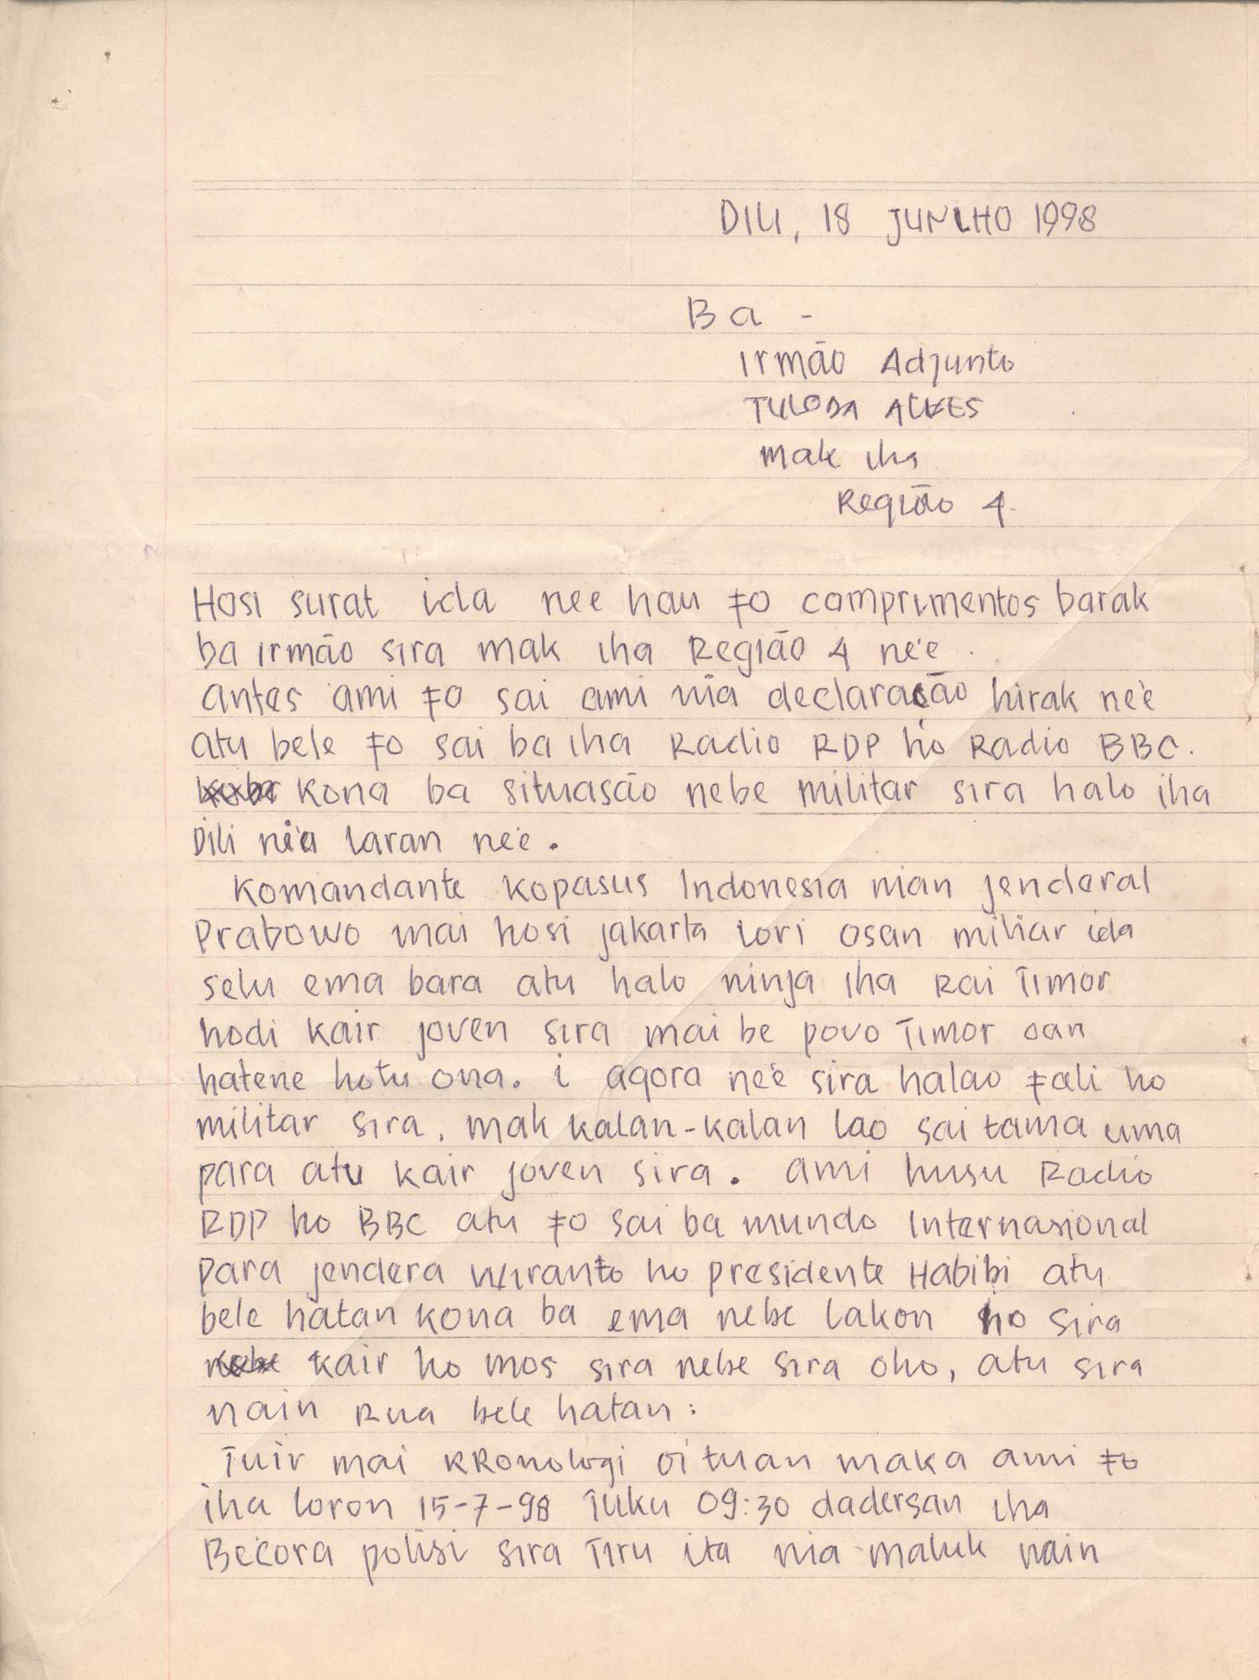 DILI, 18 JUNLHO 1998
Ba -
Irmão Adjunto
TULODA ALVES
mak iha
Região 4.
Hosi surat ida nee hau fo comprimentos barak
ba irmão sira mak iha Região 4 ne'e.
antes ami fo sai ami nia declaracão hirak ne'e
atu bele fo sai ba iha Radio RDP ho Radio BBC.
kona ba situasão nebe militar sira halo iha
Dili ni'a laran ne'e.
Komandante Kopasus Indonesia nian jenderal
Prabowo mai hosi jakarta lori osan miliar ida
selu ema bara atu halo ninja iha Rai Timor
hodi kair joven sira mai be povo Timor oan
hatene hotu ona. i agora ne'e sira halao fali ho
militar sira. mak kalan-kalan lao sai tama uma
para atu kair joven sira. ami husu Radio
RDP ho BBC atu fo sai ba mundo Internasional
para jendera Wiranto ho presidente Habibi atu
bele hatan kona ba ema nebe lakon ho sira
kair ho mos sira nebe sira oho, atu sira
nain Rua bele hatan:
Tuir mai KRonologi oituan maka ami fo
iha loron 15-7-98 Tuku 09:30 dadersan iha
Becora polisi sira Tiru ita nia maluk nain